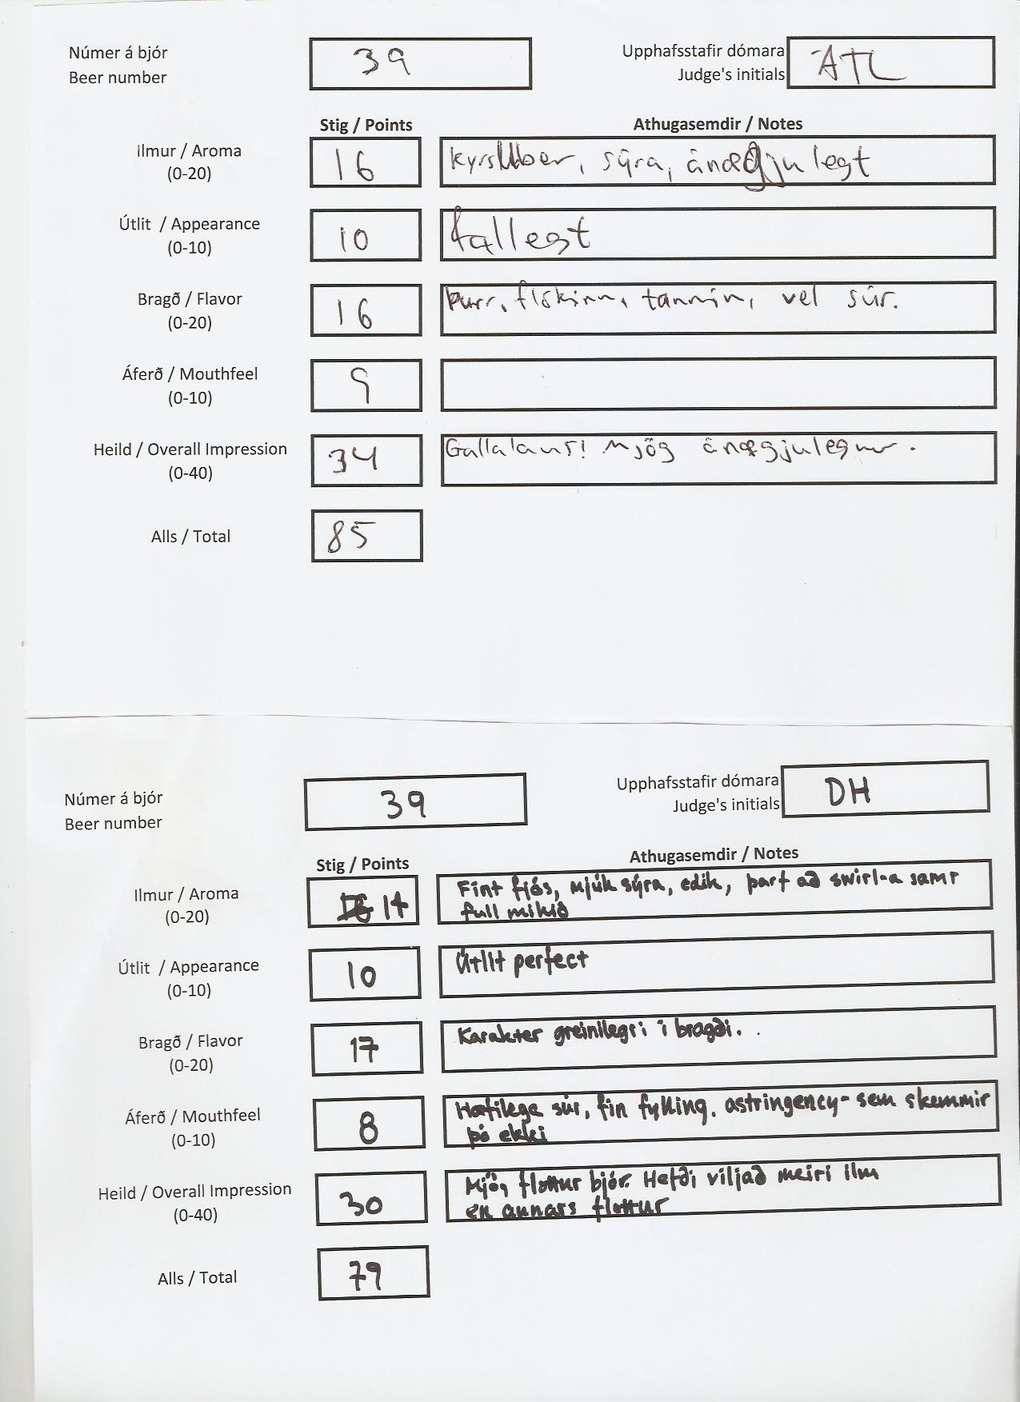 Númer á bjór
Beer number
39
Upphafsstafir dómara
Judge's initials
ÁTL
Stig / Points
Athugasemdir / Notes
Ilmur / Aroma
(0-20)
16
kyrsuber, sýra, ánægjulegt
Útlit / Appearance
(0-10)
10
fallegt
Bragð / Flavor
(0-20)
16
Þurr, flókinn, tannín, vel súr.
Áferð / Mouthfeel
(0-10)
9
Heild / Overall Impression
(0-40)
34
Gallalaus! Mjög ánægjulegur.
Alls / Total
85
Númer á bjór
Beer number
39
Upphafsstafir dómara
Judge's initials
DH
Stig / Points
Athugasemdir / Notes
Ilmur / Aroma
(0-20)
14
Fint fjós, mjúk sýra, edik, þarf að swirl-a samt
full mikið
Útlit / Appearance
(0-10)
10
Útlit perfect
Bragð / Flavor
(0-20)
17
Karakter greinilegri í bragði.
Áferð / Mouthfeel
(0-10)
8
Hæfilega súr, fín fylling, astringency - sem skemmir
þó ekki
Heild / Overall Impression
(0-40)
30
Mjög flottur bjór. Hefði viljað meiri ilm
en annars flottur
Alls / Total
79